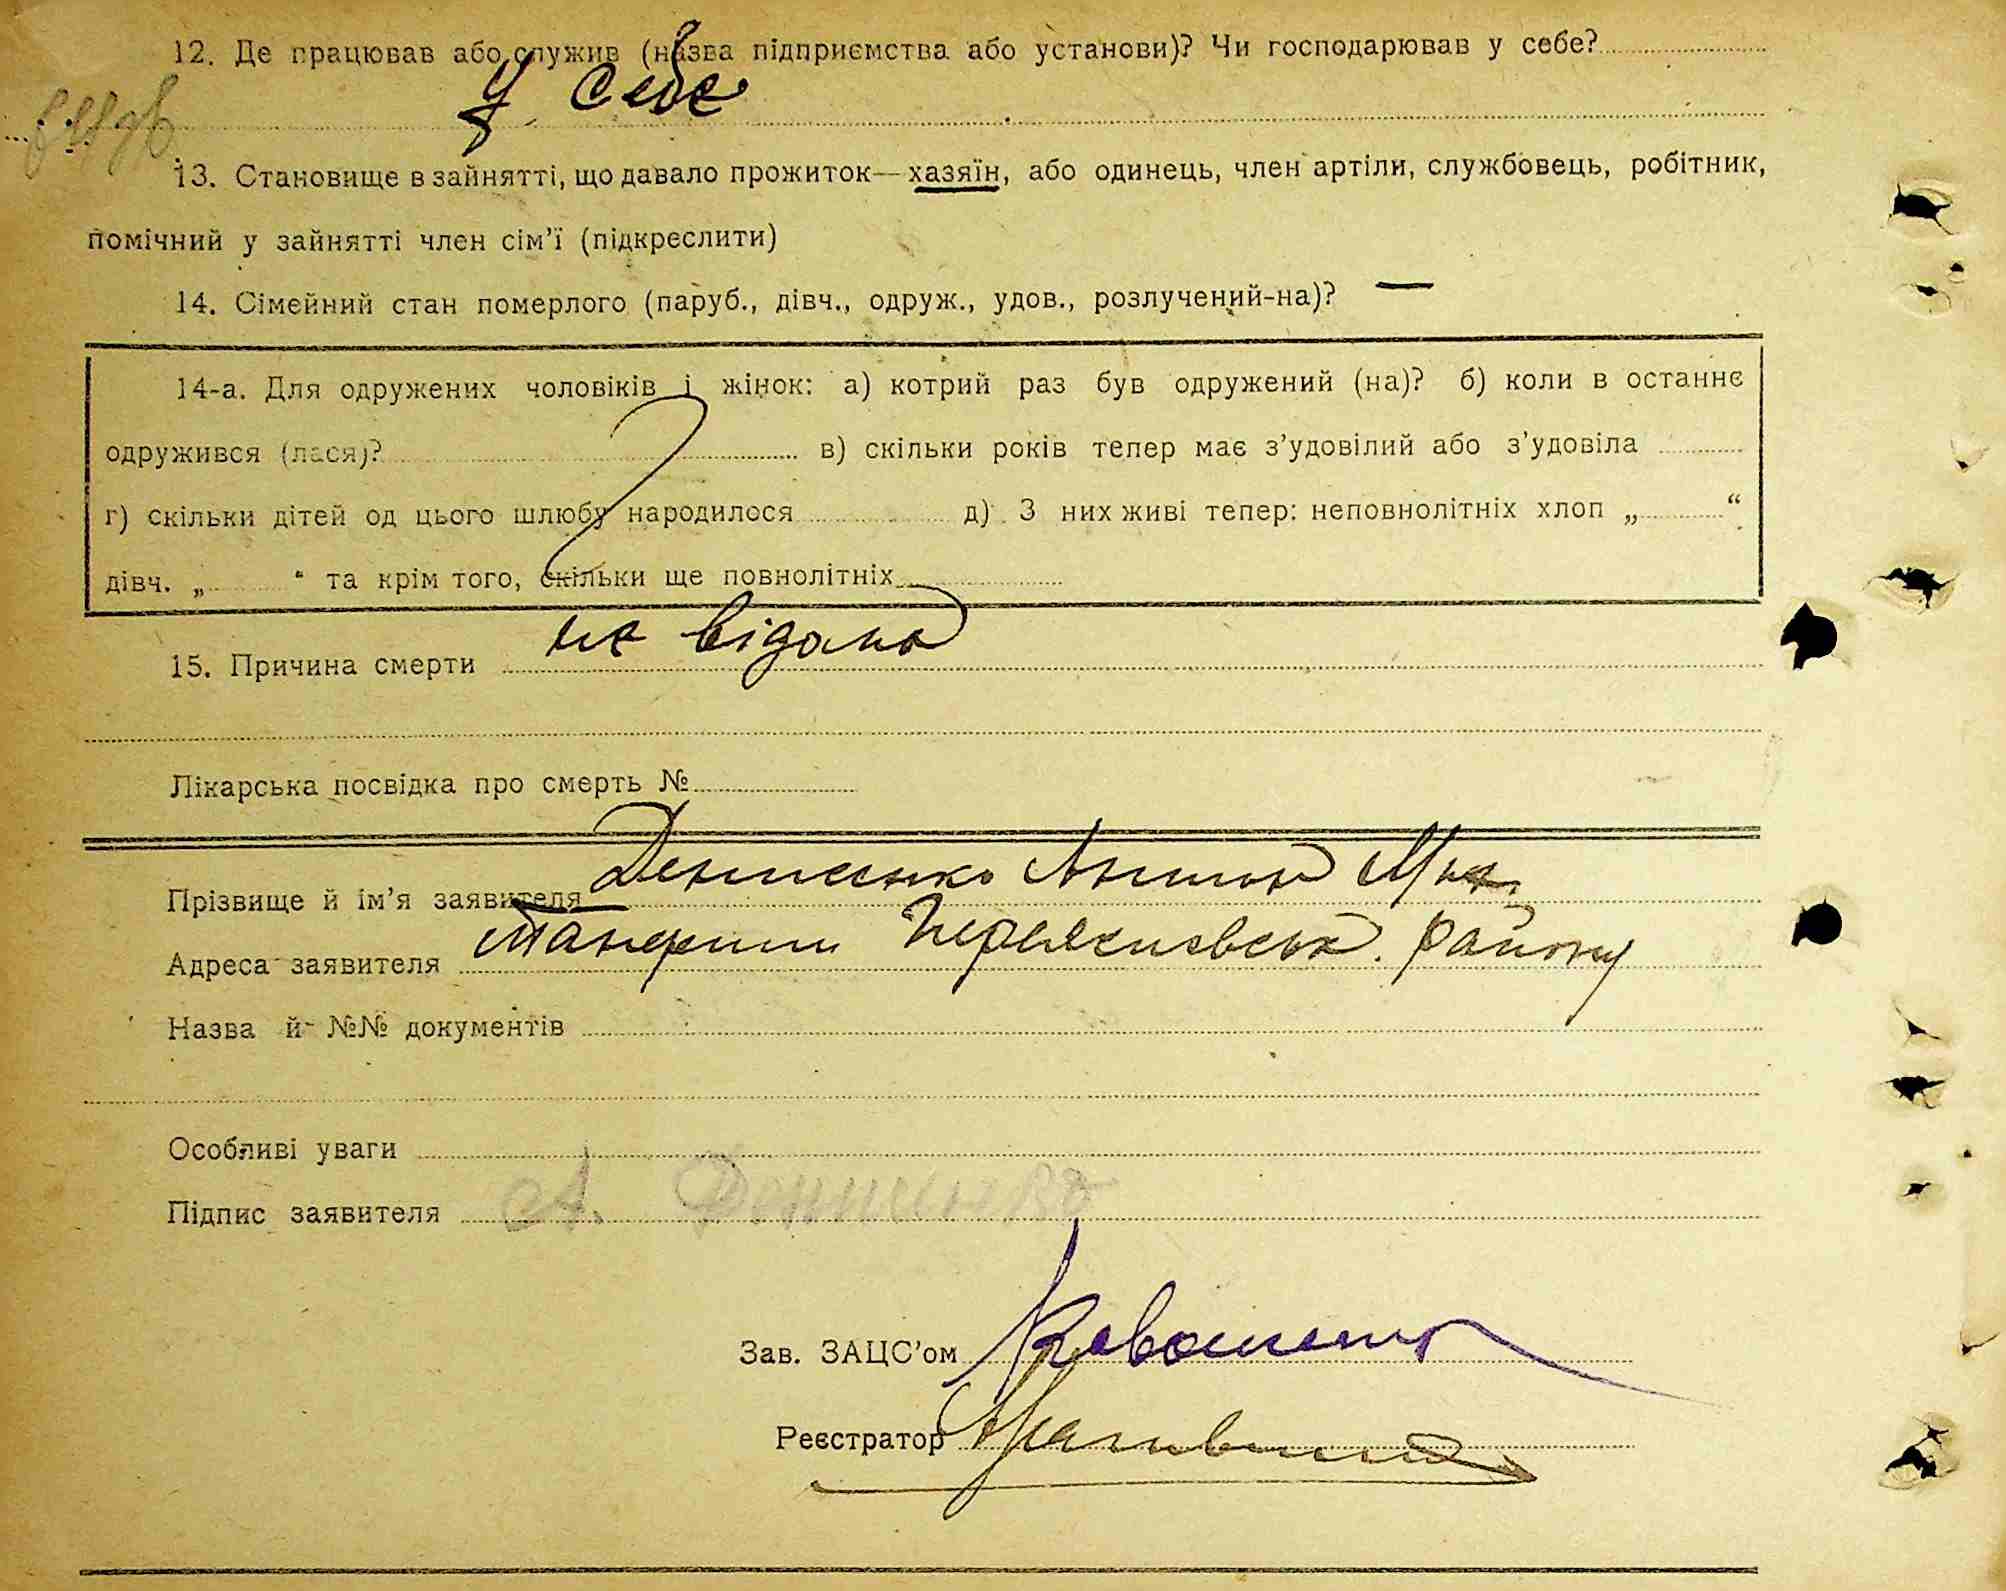 12. Де працював або служив (назва підприємства або установи)? Чи господарював у себе?
У себе
13. Становище в зайнятті, що давало прожиток—хазяїн, або одинець, член артіли, службовець, робітник,
помічний у зайнятті член сім'ї (підкреслити)
14. Сімейний стан померлого (паруб., дівч., одруж., удов., розлучений-на)? —
14-а. Для одружених чоловіків і жінок: а) котрий раз був одружений (на)? б) коли в останнє
одружився (лася)? в) скільки років тепер має з'удовілий або з'удовіла
г) скільки дітей од цього шлюбу народилося д) З них живі тепер: неповнолітніх хлоп „ “
дівч. „ “ та крім того, скільки ще повнолітніх
15. Причина смерти не відома
Лікарська посвідка про смерть №
Прізвище й ім'я заявителя Денисенко Антон
Адреса заявителя району
Назва й №№ документів
Особливі уваги
Підпис заявителя А. Денисенко
Зав. ЗАЦС'ом
Реєстратор